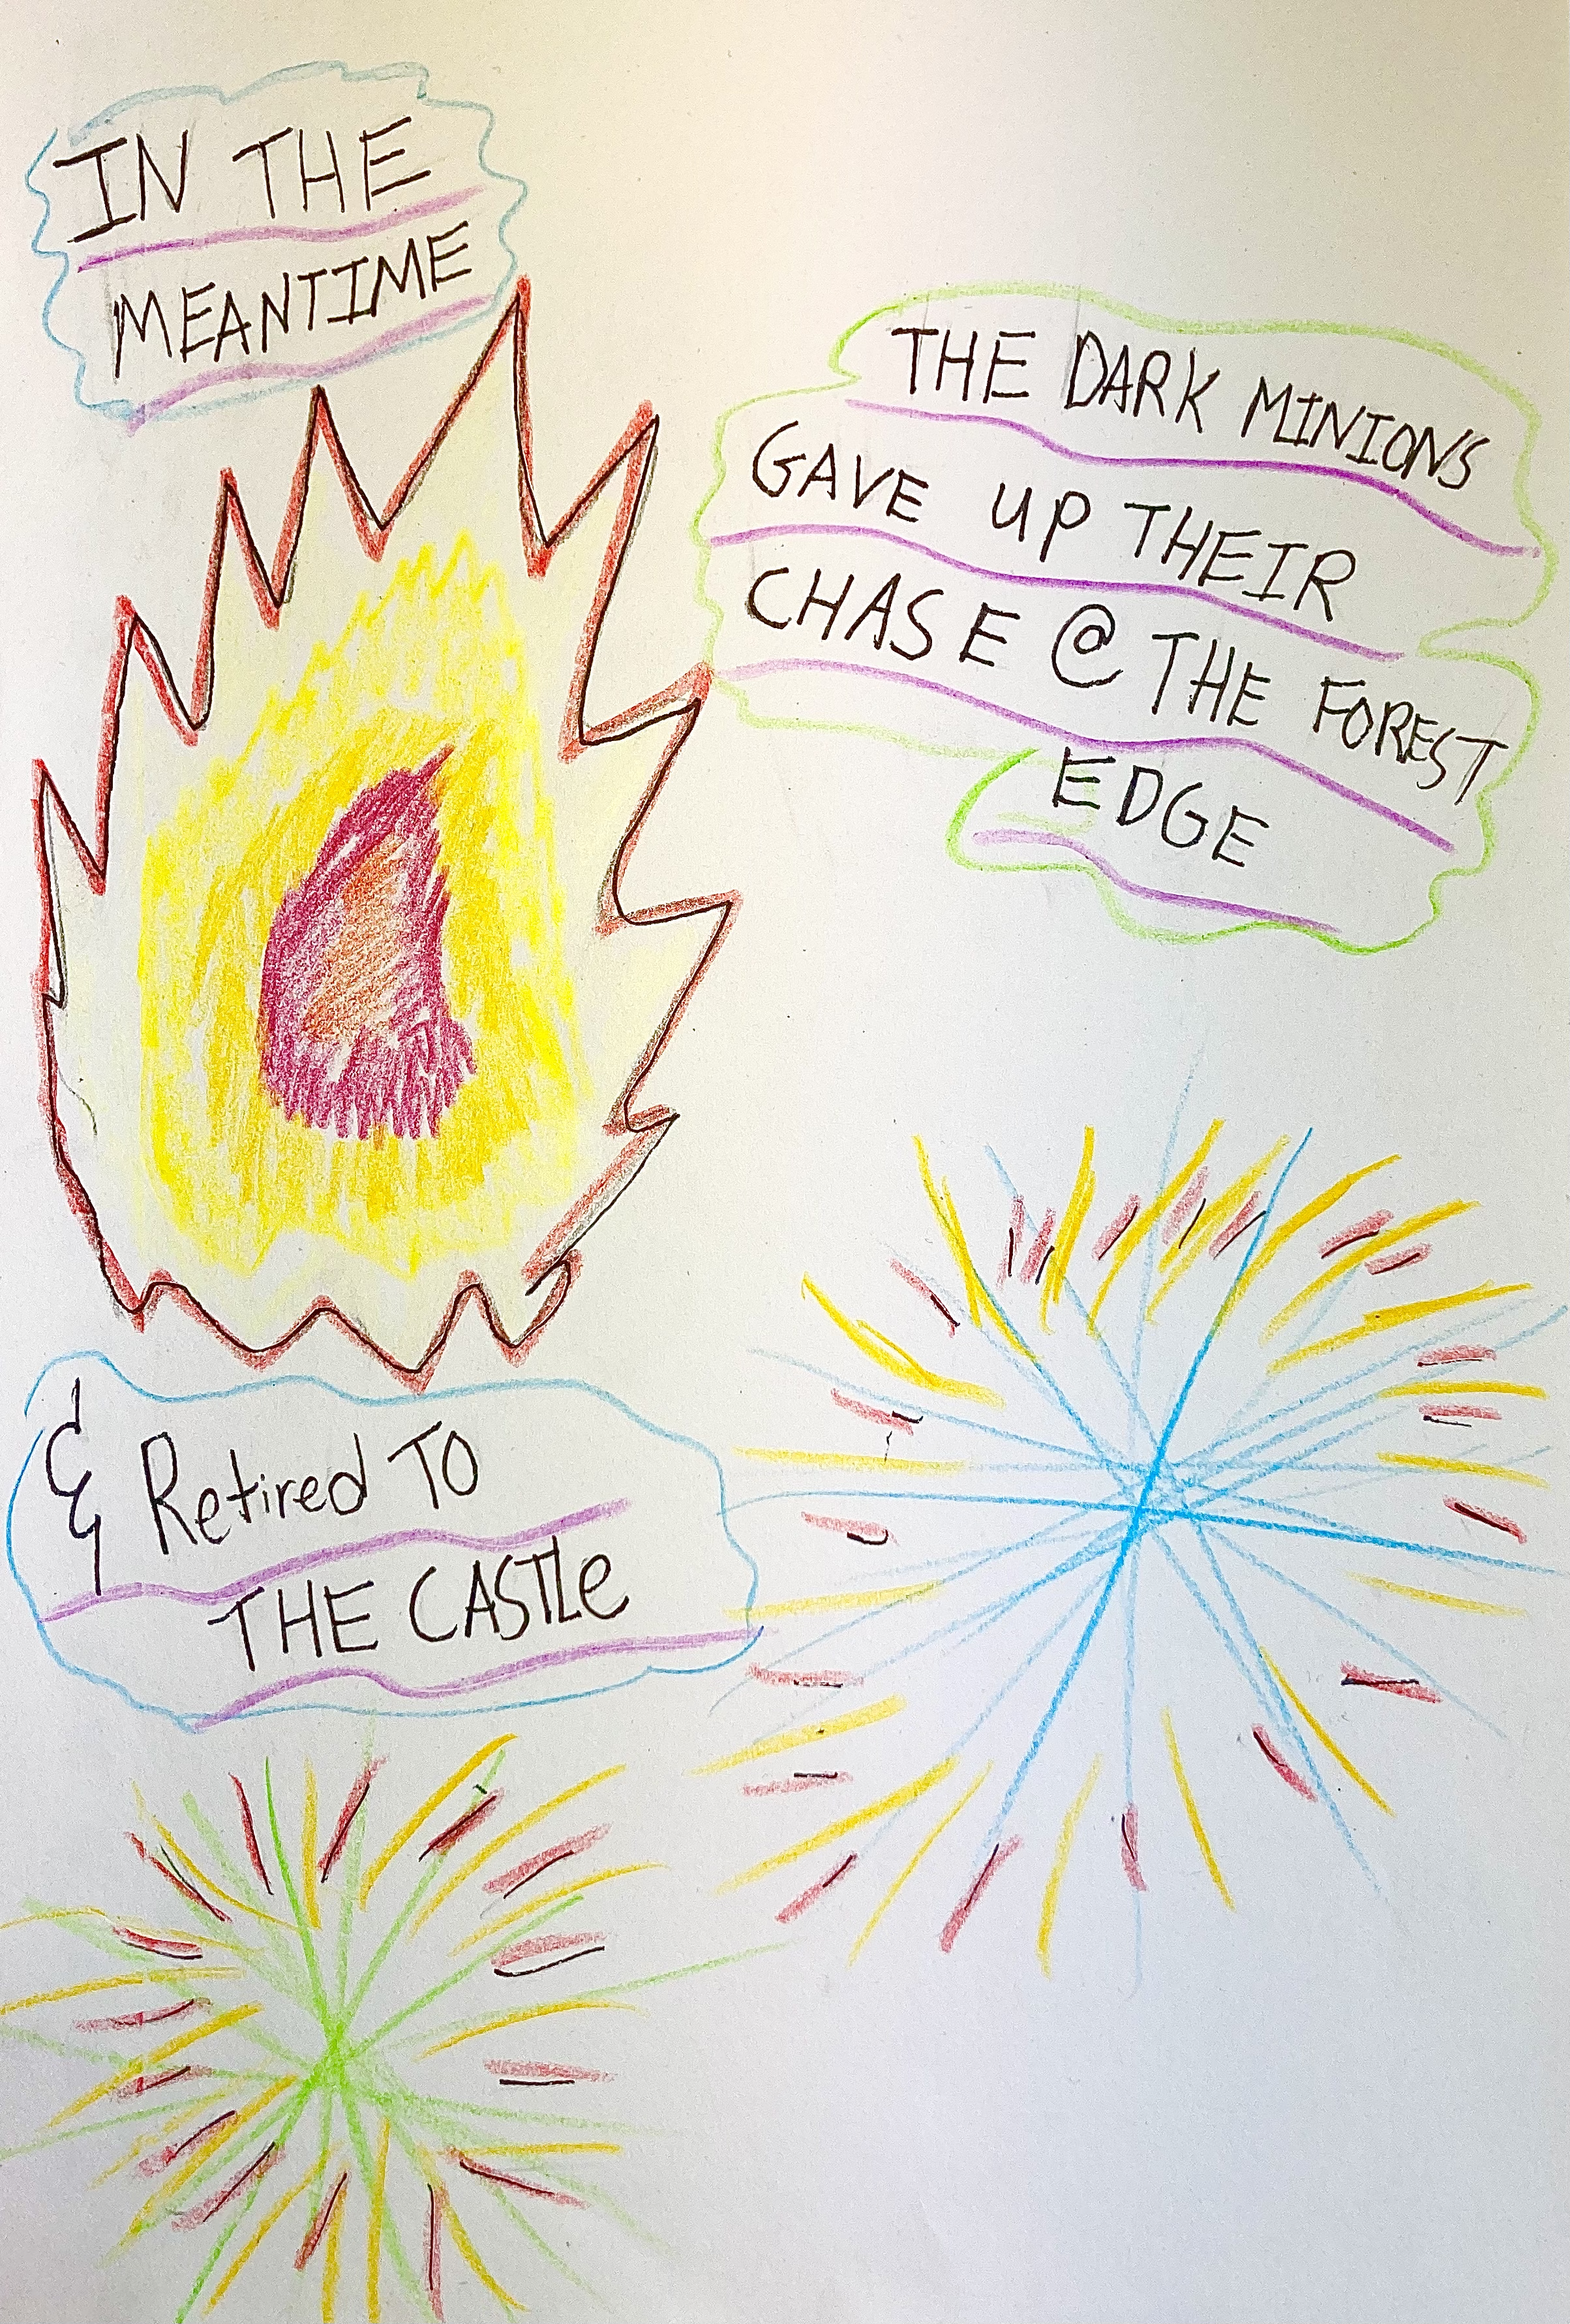 IN THE
MEANTIME
THE DARK MINIONS
GAVE UP THEIR
CHASE @ THE FOREST
EDGE
& Retired TO
THE CASTLe